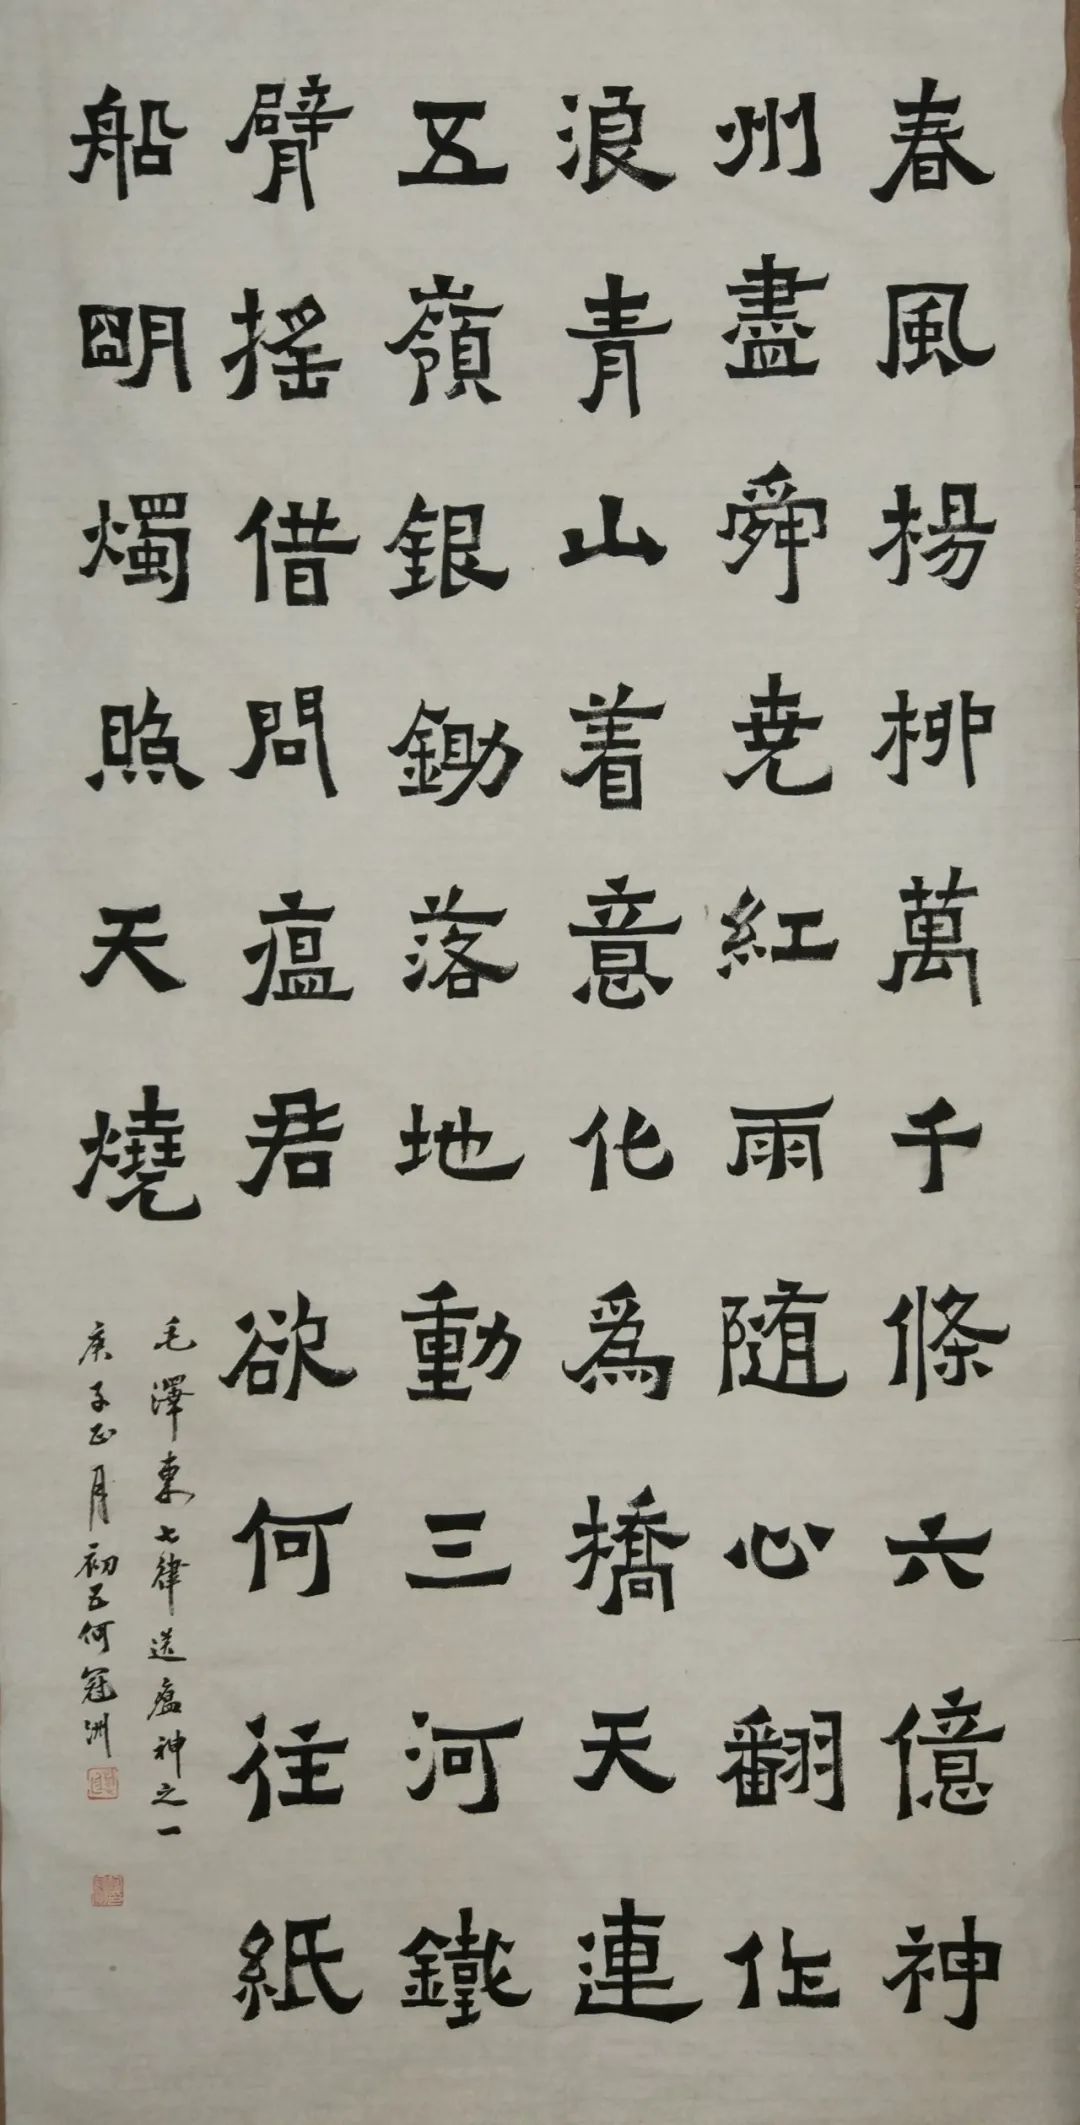 春風揚柳萬千條六億神
州盡舜尭紅雨隨心翻作
浪青山着意化為橋天連
五嶺銀鋤落地動三河鐵
臂搖借問瘟君欲何往紙
船明燭照天燒
毛澤東七律送瘟神之一
庚子正月初五何冠洲